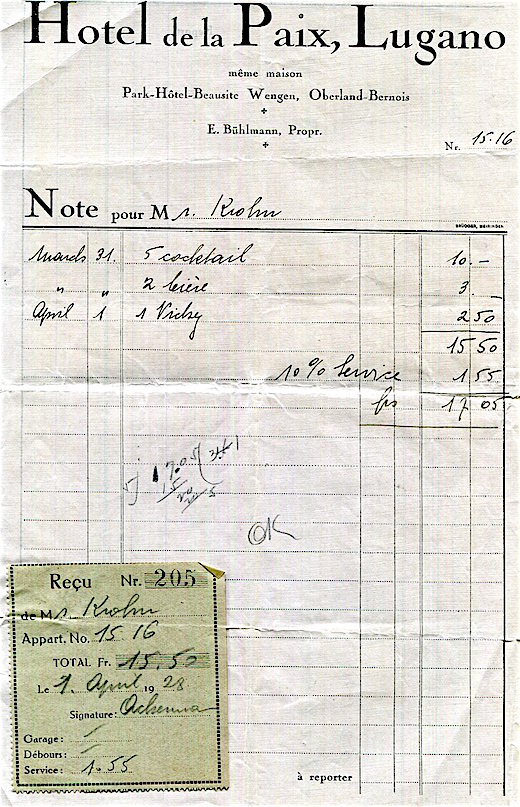 Hotel de la Paix, Lugano
même maison
Park-Hôtel-Beausite Wengen, Oberland-Bernois
E. Bühlmann, Propr.
Nr. 15.16
Note pour Mr. Krohn
March 31. 5 cocktail 10.-
" " 2 bière 3.-
April 1 1 Vichy 2 50
15 50
10% Service 1 55
frs 17 05
OK
Reçu Nr. 205
de Mr. Krohn
Appart. No. 15 16
TOTAL Fr. 15.50
Le 1. April 1928
Signature:
Garage: /
Débours: /
Service: 1.55
à reporter